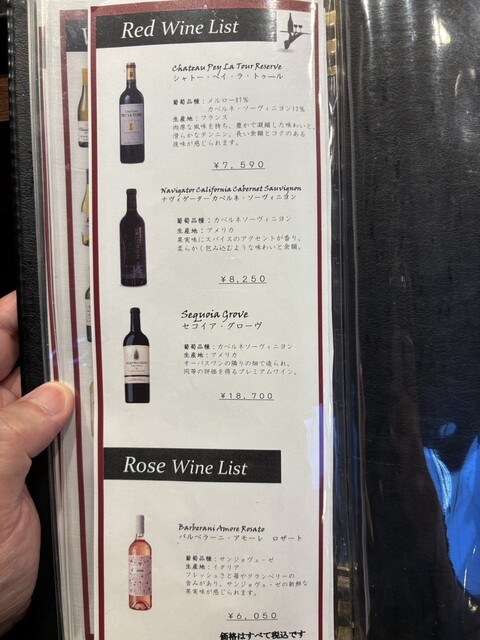 Red Wine List
Chateau Pey La Tour Reserve
シャトー・ペイ・ラ・トゥール
葡萄品種：メルロー87%
カベルネ・ソーヴィニヨン13%
生産地：フランス
肉厚な風味を持ち、豊かで凝縮した味わいと、
滑らかなタンニン。長い余韻とコクのある
後味が感じられます。
￥7,590
Navigator California Cabernet Sauvignon
ナヴィゲーター カベルネ・ソーヴィニヨン
葡萄品種：カベルネソーヴィニヨン
生産地：アメリカ
果実味にスパイスのアクセントが香り、
柔らかく包み込むような味わいと余韻。
￥8,250
Sequoia Grove
セコイア・グローヴ
葡萄品種：カベルネソーヴィニヨン
生産地：アメリカ
オーパスワンの隣りの畑で造られ、
同等の評価を得るプレミアムワイン。
￥18,700
Rose Wine List
Barberani Amore Rosato
バルベラーニ・アモーレ ロザート
葡萄品種：サンジョヴェ・ーゼ
生産地：イタリア
フレッシュさと苺やクランベリーの
含みがあり、サンジョヴェ・ーゼの新鮮な
果実味が感じられます。
￥6,050
価格はすべて税込です